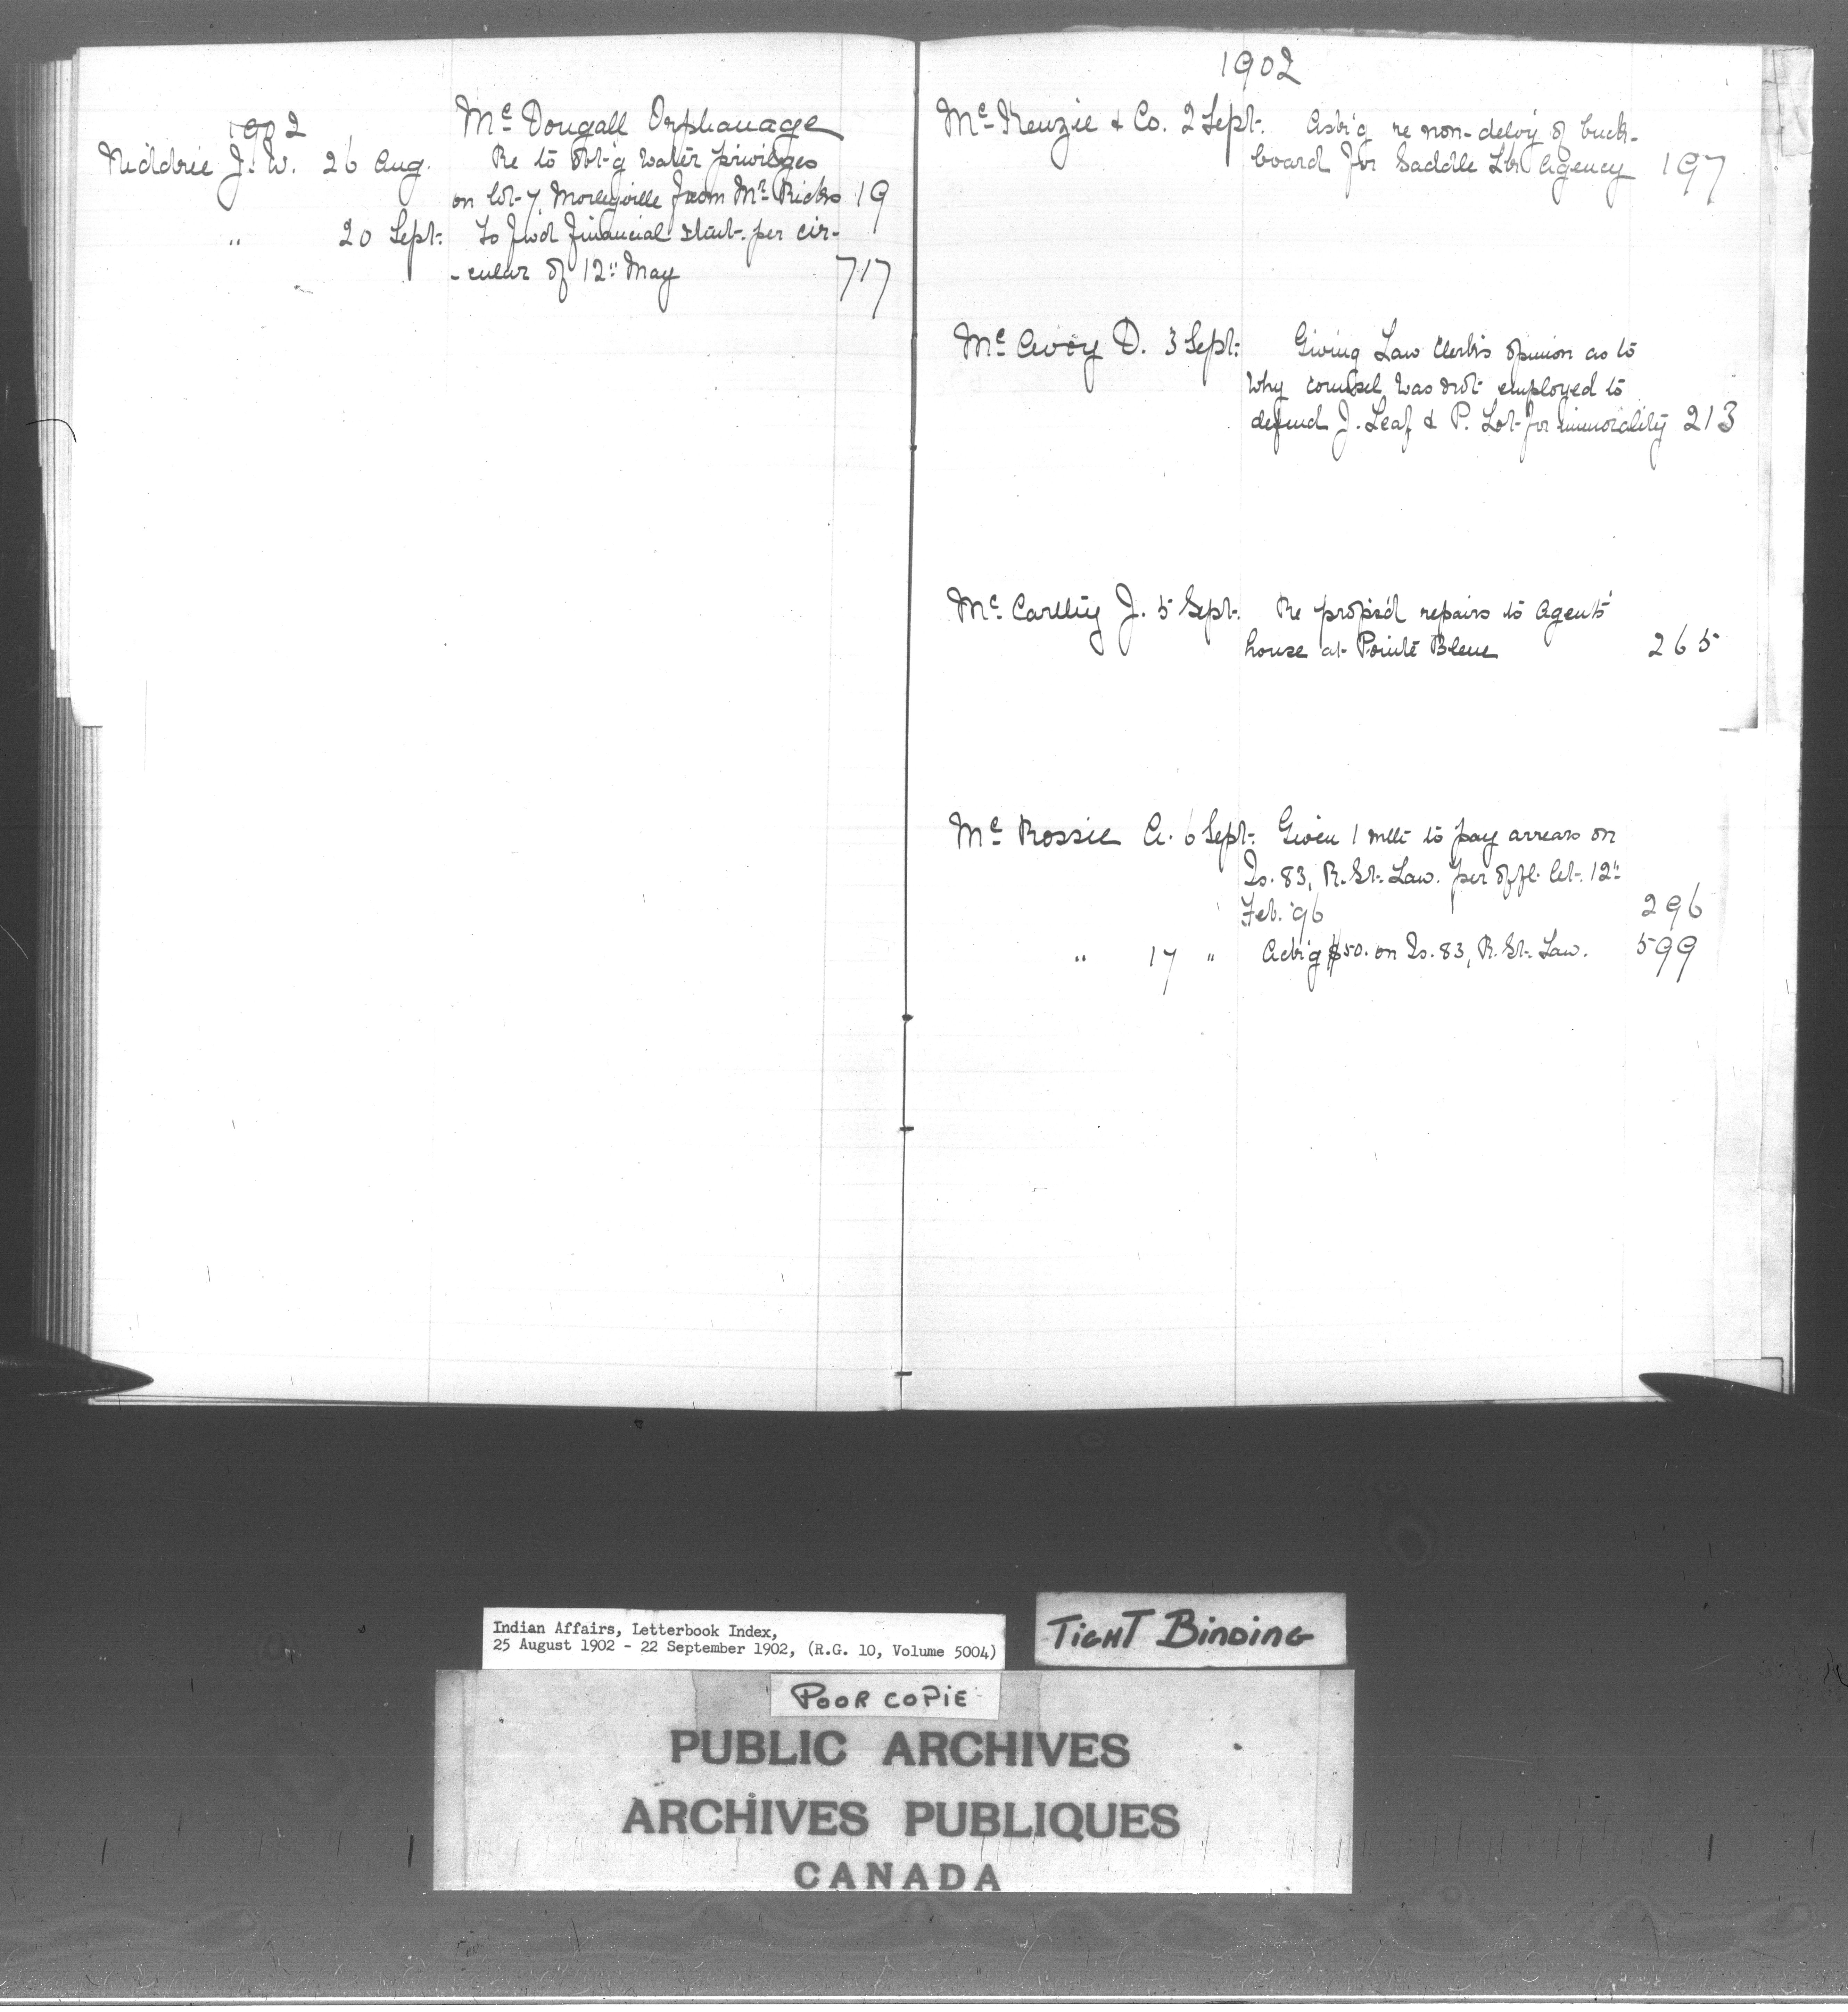 1902
Mc Dougall Orphanage
Niddrie J. W. 26 Aug. Re to obt'g water privileges
on lot 7, Morleyville from Mr. Ricks 19
" 20 Sept. To fwd financial statmt. per cir-
-cular of 12" May 717
1902
Mc Kenzie & Co. 2 Sept. Ask'g re non-delvy of buck-
board for Saddle Lke Agency 197
Mc Avoy D. 3 Sept. Giving Law Clerk's opinion as to
why counsel was not employed to
defend J. Leaf & P. Lot for immorality 213
Mc Carthy J. 5 Sept. Re propsd repairs to Agents'
house at Pointe Bleue 265
Mc Rossie A. 6 Sept. Given 1 mth to pay arrears on
Is. 83, R. St. Law. per offl. let. 12"
Feb. '96 296
" 17 " Ack'g $50. on Is. 83, R. St. Law. 599
Indian Affairs, Letterbook Index,
25 August 1902 - 22 September 1902, (R.G. 10, Volume 5004)
TIGHT BINDING
POOR COPIE
PUBLIC ARCHIVES
ARCHIVES PUBLIQUES
CANADA